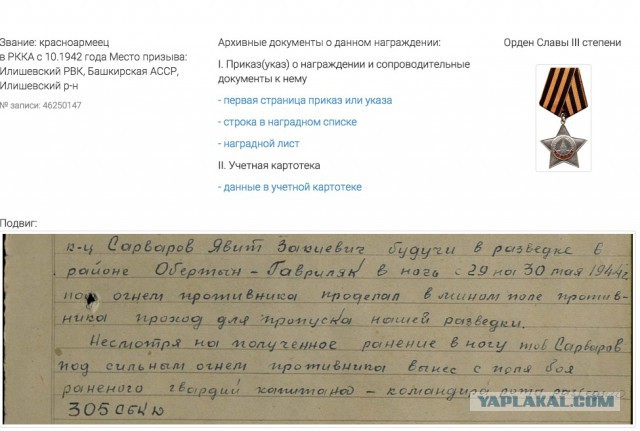 Звание: красноармеец
в РККА с 10.1942 года Место призыва:
Илишевский РВК, Башкирская АССР,
Илишевский р-н
№ записи: 46250147
Архивные документы о данном награждении:
I. Приказ(указ) о награждении и сопроводительные
документы к нему
- первая страница приказ или указа
- строка в наградном списке
- наградной лист
II. Учетная картотека
- данные в учетной картотеке
Орден Славы III степени
Подвиг:
к-ц Сарваров Явит Закиевич будучи в разведке в
районе Обертын - Гавриляк в ночь с 29 на 30 мая 1944г.
под огнем противника проделал в минном поле против-
ника проход для пропуска нашей разведки.
Несмотря на полученное ранение в ногу тов Сарваров
под сильным огнем противника вынес с поля боя
раненого гвардии капитана - командира
305
YAPLAKAL.COM